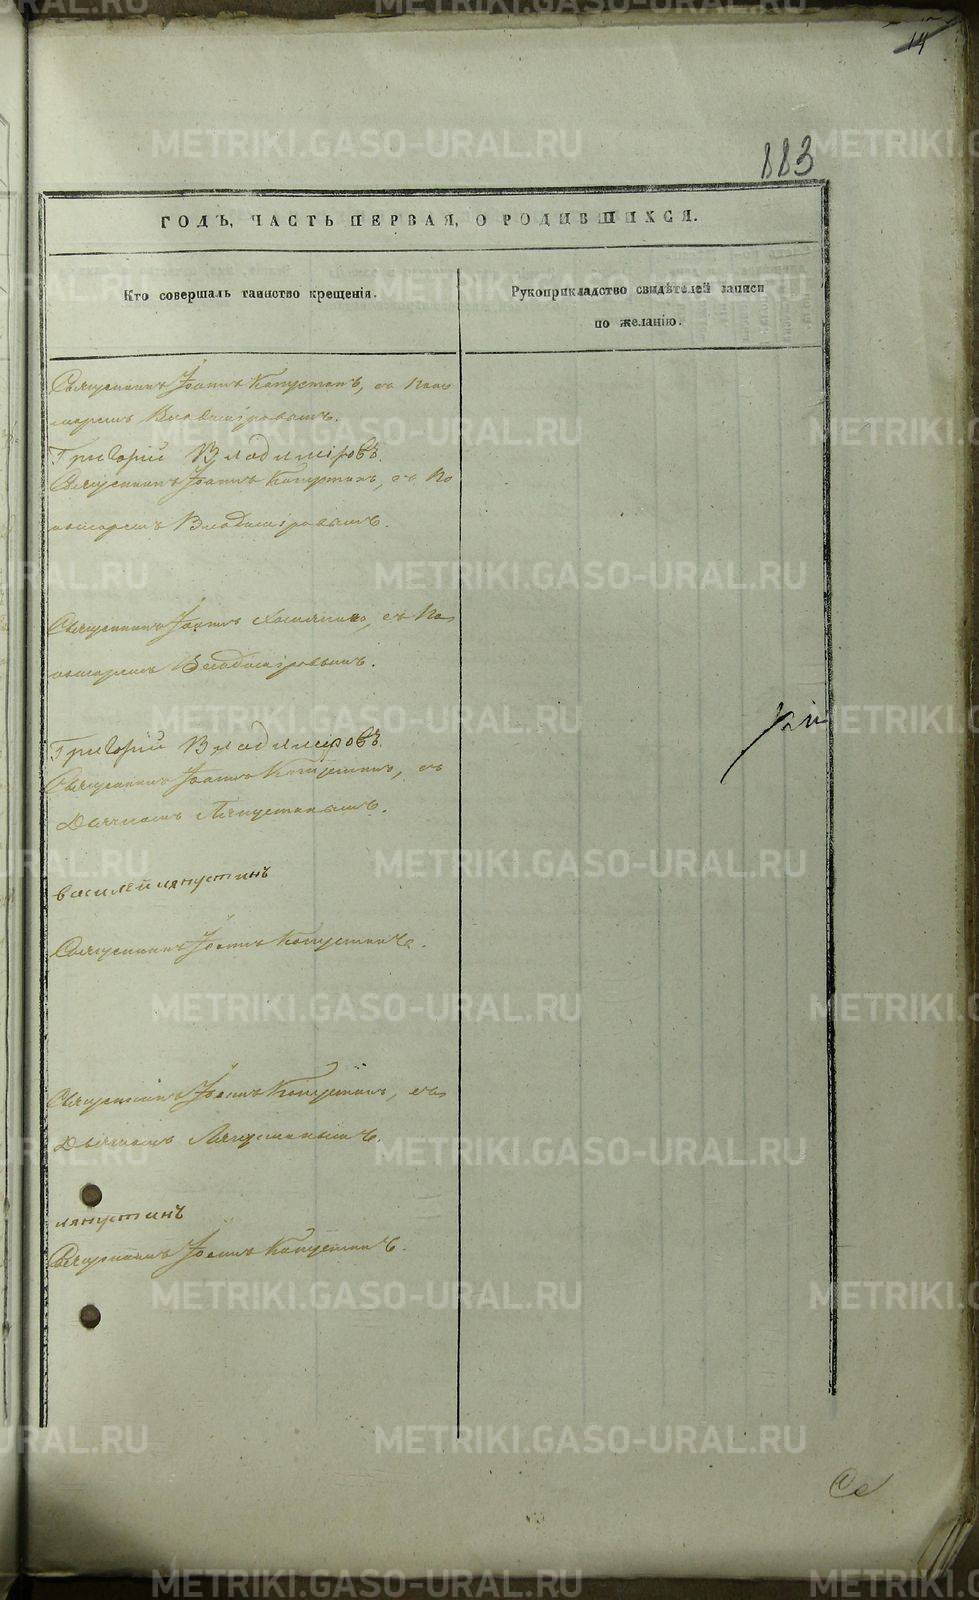 14
883
ГОДЪ, ЧАСТЬ ПЕРВАЯ, О РОДИВШИХСЯ.
Кто совершалъ таинство крещенія.
Рукоприкладство свидѣтелей записи
по желанію.
Священникъ Іоаннъ Капустинъ, съ Поно
маремъ Владиміровымъ.
Григорій Владиміровъ
Священникъ Іоаннъ Капустинъ, съ По
номаремъ Владиміровымъ.
Священникъ Іоаннъ съ По
номаремъ Владиміровымъ.
Григорій Владиміровъ
Священникъ Іоаннъ Капустинъ, съ
Дьячкомъ Ляпустинымъ.
василей ляпустинъ
Священникъ Іоаннъ Капустинъ.
Священникъ Іоаннъ Капустинъ, съ
Дьячкомъ Ляпустинымъ.
ляпустинъ
Священникъ Іоаннъ Капустинъ.
METRIKI.GASO-URAL.RU